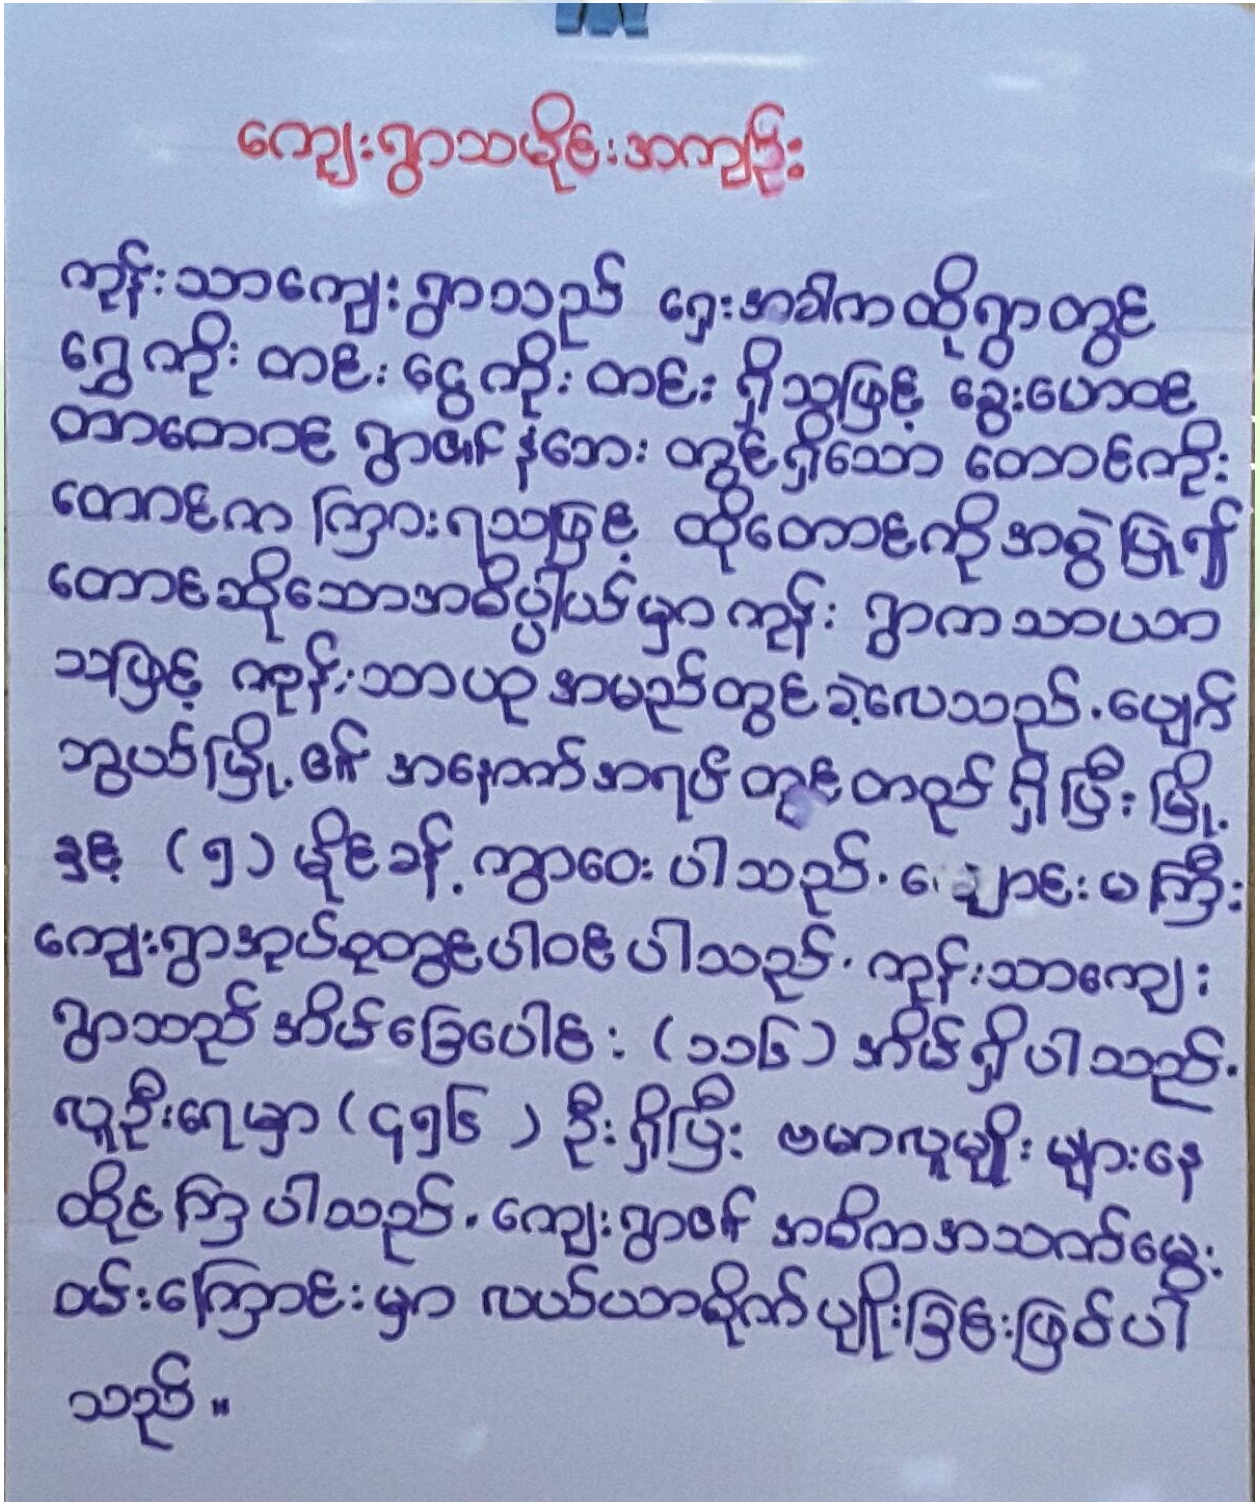 ကျေးရွာသမိုင်းအကျဉ်း
ကုန်းသာကျေးရွာသည် ရှေးအခါကထိုရွာတွင်
ရွှေကိုး တင်း ငွေကိုး တင်း ရှိသဖြင့် ခွေးဟောင်
တာတောင် ရွာ၏ နံဘေး တွင်ရှိသော တောင်ကိုး
တောင်က ကြားရသဖြင့် ထိုတောင်ကို အစွဲ ပြု၍
တောင်ဆိုသောအဓိပ္ပါယ်မှာ ကုန်း ရွာက သာယာ
သဖြင့် ကုန်းသာဟု အမည်တွင်ခဲ့လေသည်. ပျော်
ဘွယ်မြို့၏ အနောက်အရပ်တွင်တည် ရှိပြီး မြို့
နှင့် (၅) မိုင်ခန့် ကွာဝေး ပါသည်. ချောင်းမကြီး
ကျေးရွာအုပ်စုတွင်ပါဝင်ပါသည်. ကုန်းသာကျေး
ရွာသည် အိမ်ခြေပေါင်း (၁၁၆) အိမ်ရှိပါသည်.
လူဦးရေမှာ (၄၅၆) ဦးရှိပြီး ဗမာလူမျိုးများနေ
ထိုင်ကြပါသည်. ကျေးရွာ၏ အဓိကအသက်မွေး
ဝမ်းကြောင်းမှာ လယ်ယာစိုက်ပျိုးခြင်းဖြစ်ပါ
သည်။